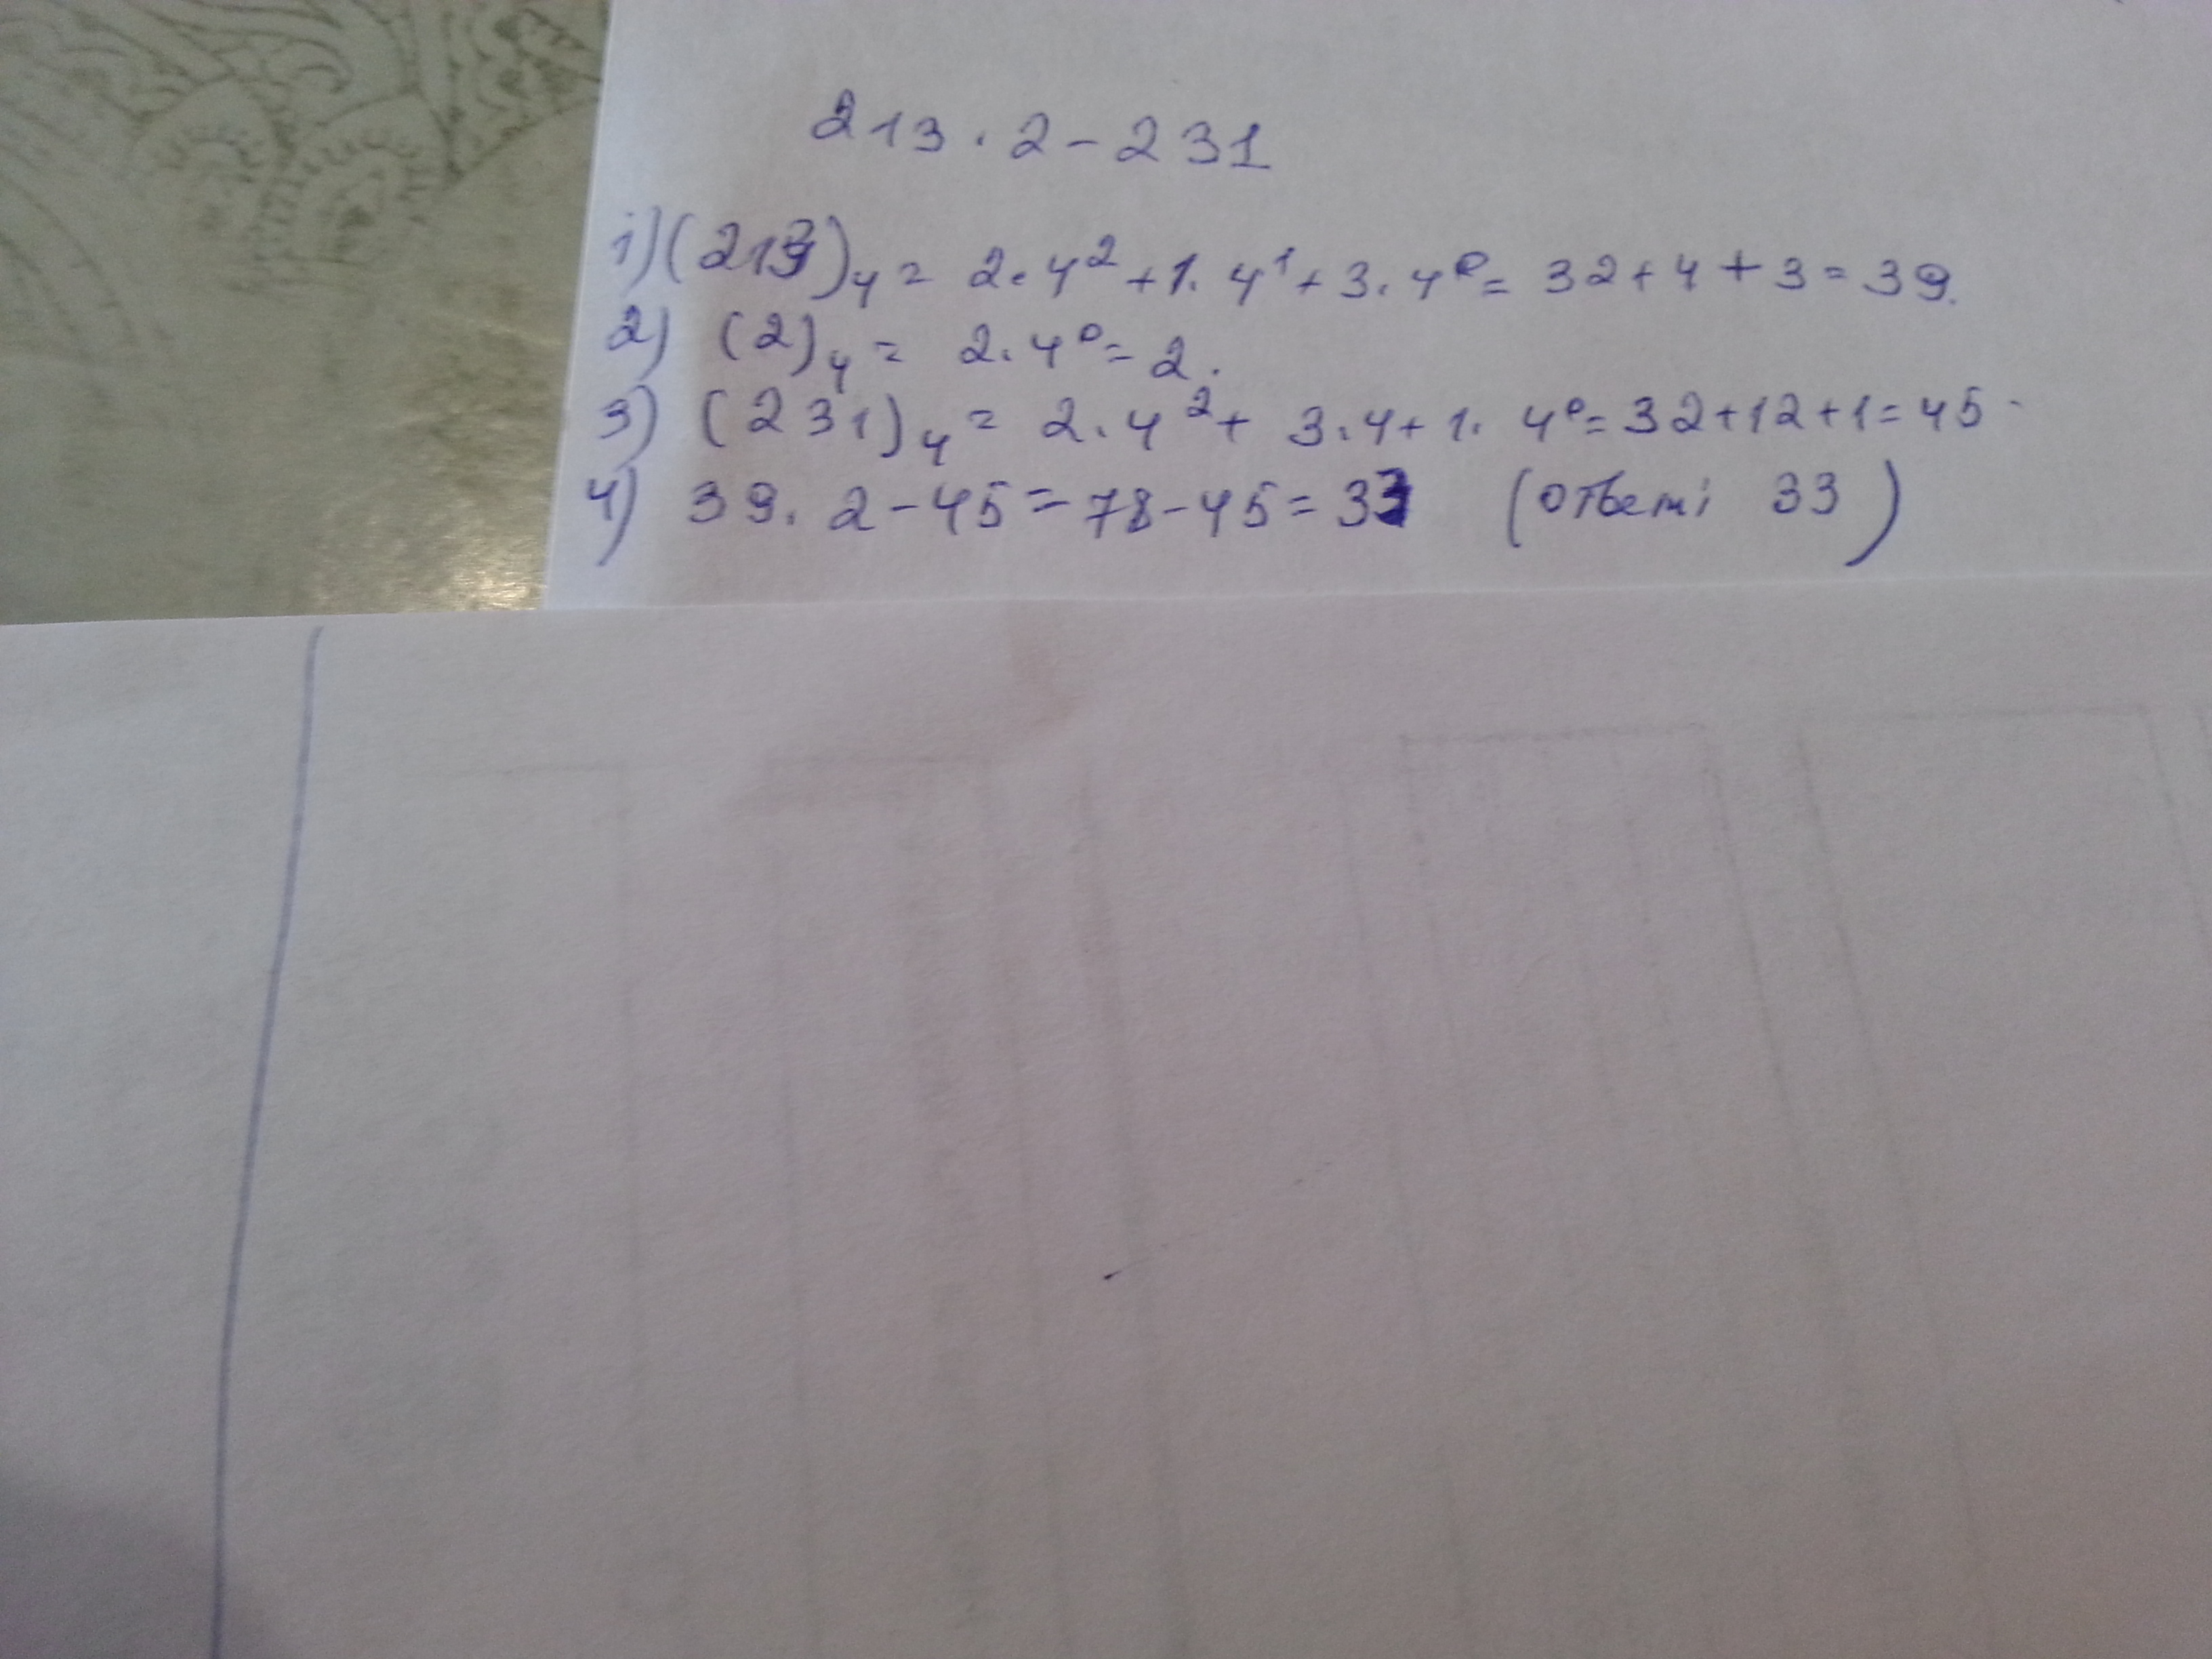 213 · 2 - 231
1) (213)₄ = 2 · 4² + 1 · 4¹ + 3 · 4⁰ = 32 + 4 + 3 = 39.
2) (2)₄ = 2 · 4⁰ = 2.
3) (231)₄ = 2 · 4² + 3 · 4 + 1 · 4⁰ = 32 + 12 + 1 = 45.
4) 39 · 2 - 45 = 78 - 45 = 33 (Ответ: 33)